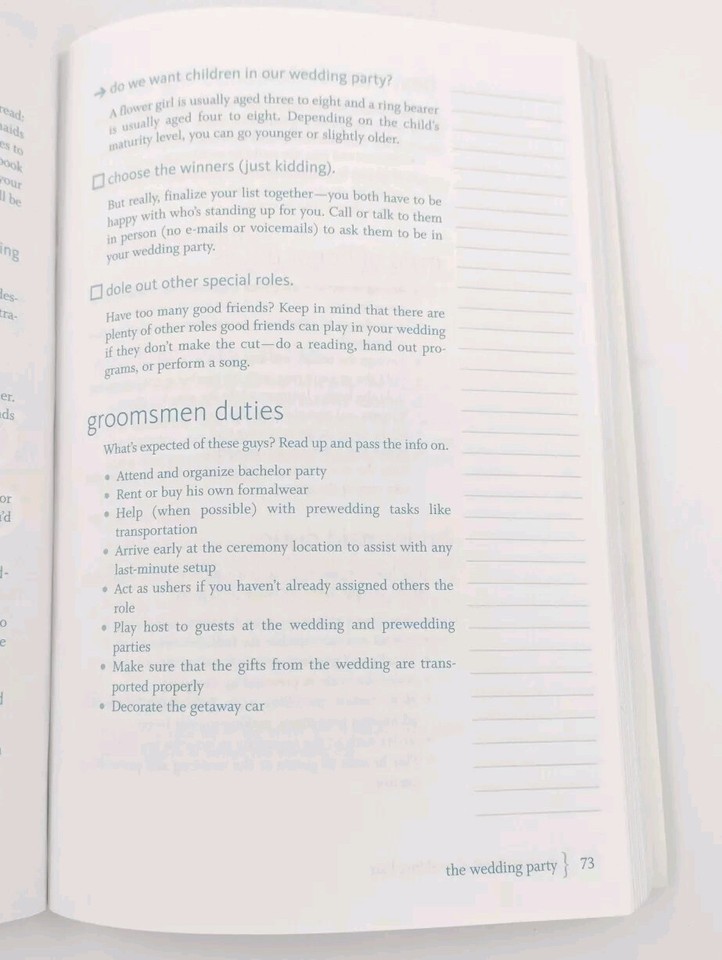 read:
aids
es to
book
your
ll be
ing
des-
tra-
er.
ds
or
'd
d-
o
e
→ do we want children in our wedding party?
A flower girl is usually aged three to eight and a ring bearer
is usually aged four to eight. Depending on the child's
maturity level, you can go younger or slightly older.
choose the winners (just kidding).
But really, finalize your list together—you both have to be
happy with who's standing up for you. Call or talk to them
in person (no e-mails or voicemails) to ask them to be in
your wedding party.
dole out other special roles.
Have too many good friends? Keep in mind that there are
plenty of other roles good friends can play in your wedding
if they don't make the cut—do a reading, hand out pro-
grams, or perform a song.
groomsmen duties
What's expected of these guys? Read up and pass the info on.
• Attend and organize bachelor party
• Rent or buy his own formalwear
• Help (when possible) with prewedding tasks like
transportation
• Arrive early at the ceremony location to assist with any
last-minute setup
• Act as ushers if you haven't already assigned others the
role
• Play host to guests at the wedding and prewedding
parties
• Make sure that the gifts from the wedding are trans-
ported properly
• Decorate the getaway car
the wedding party } 73